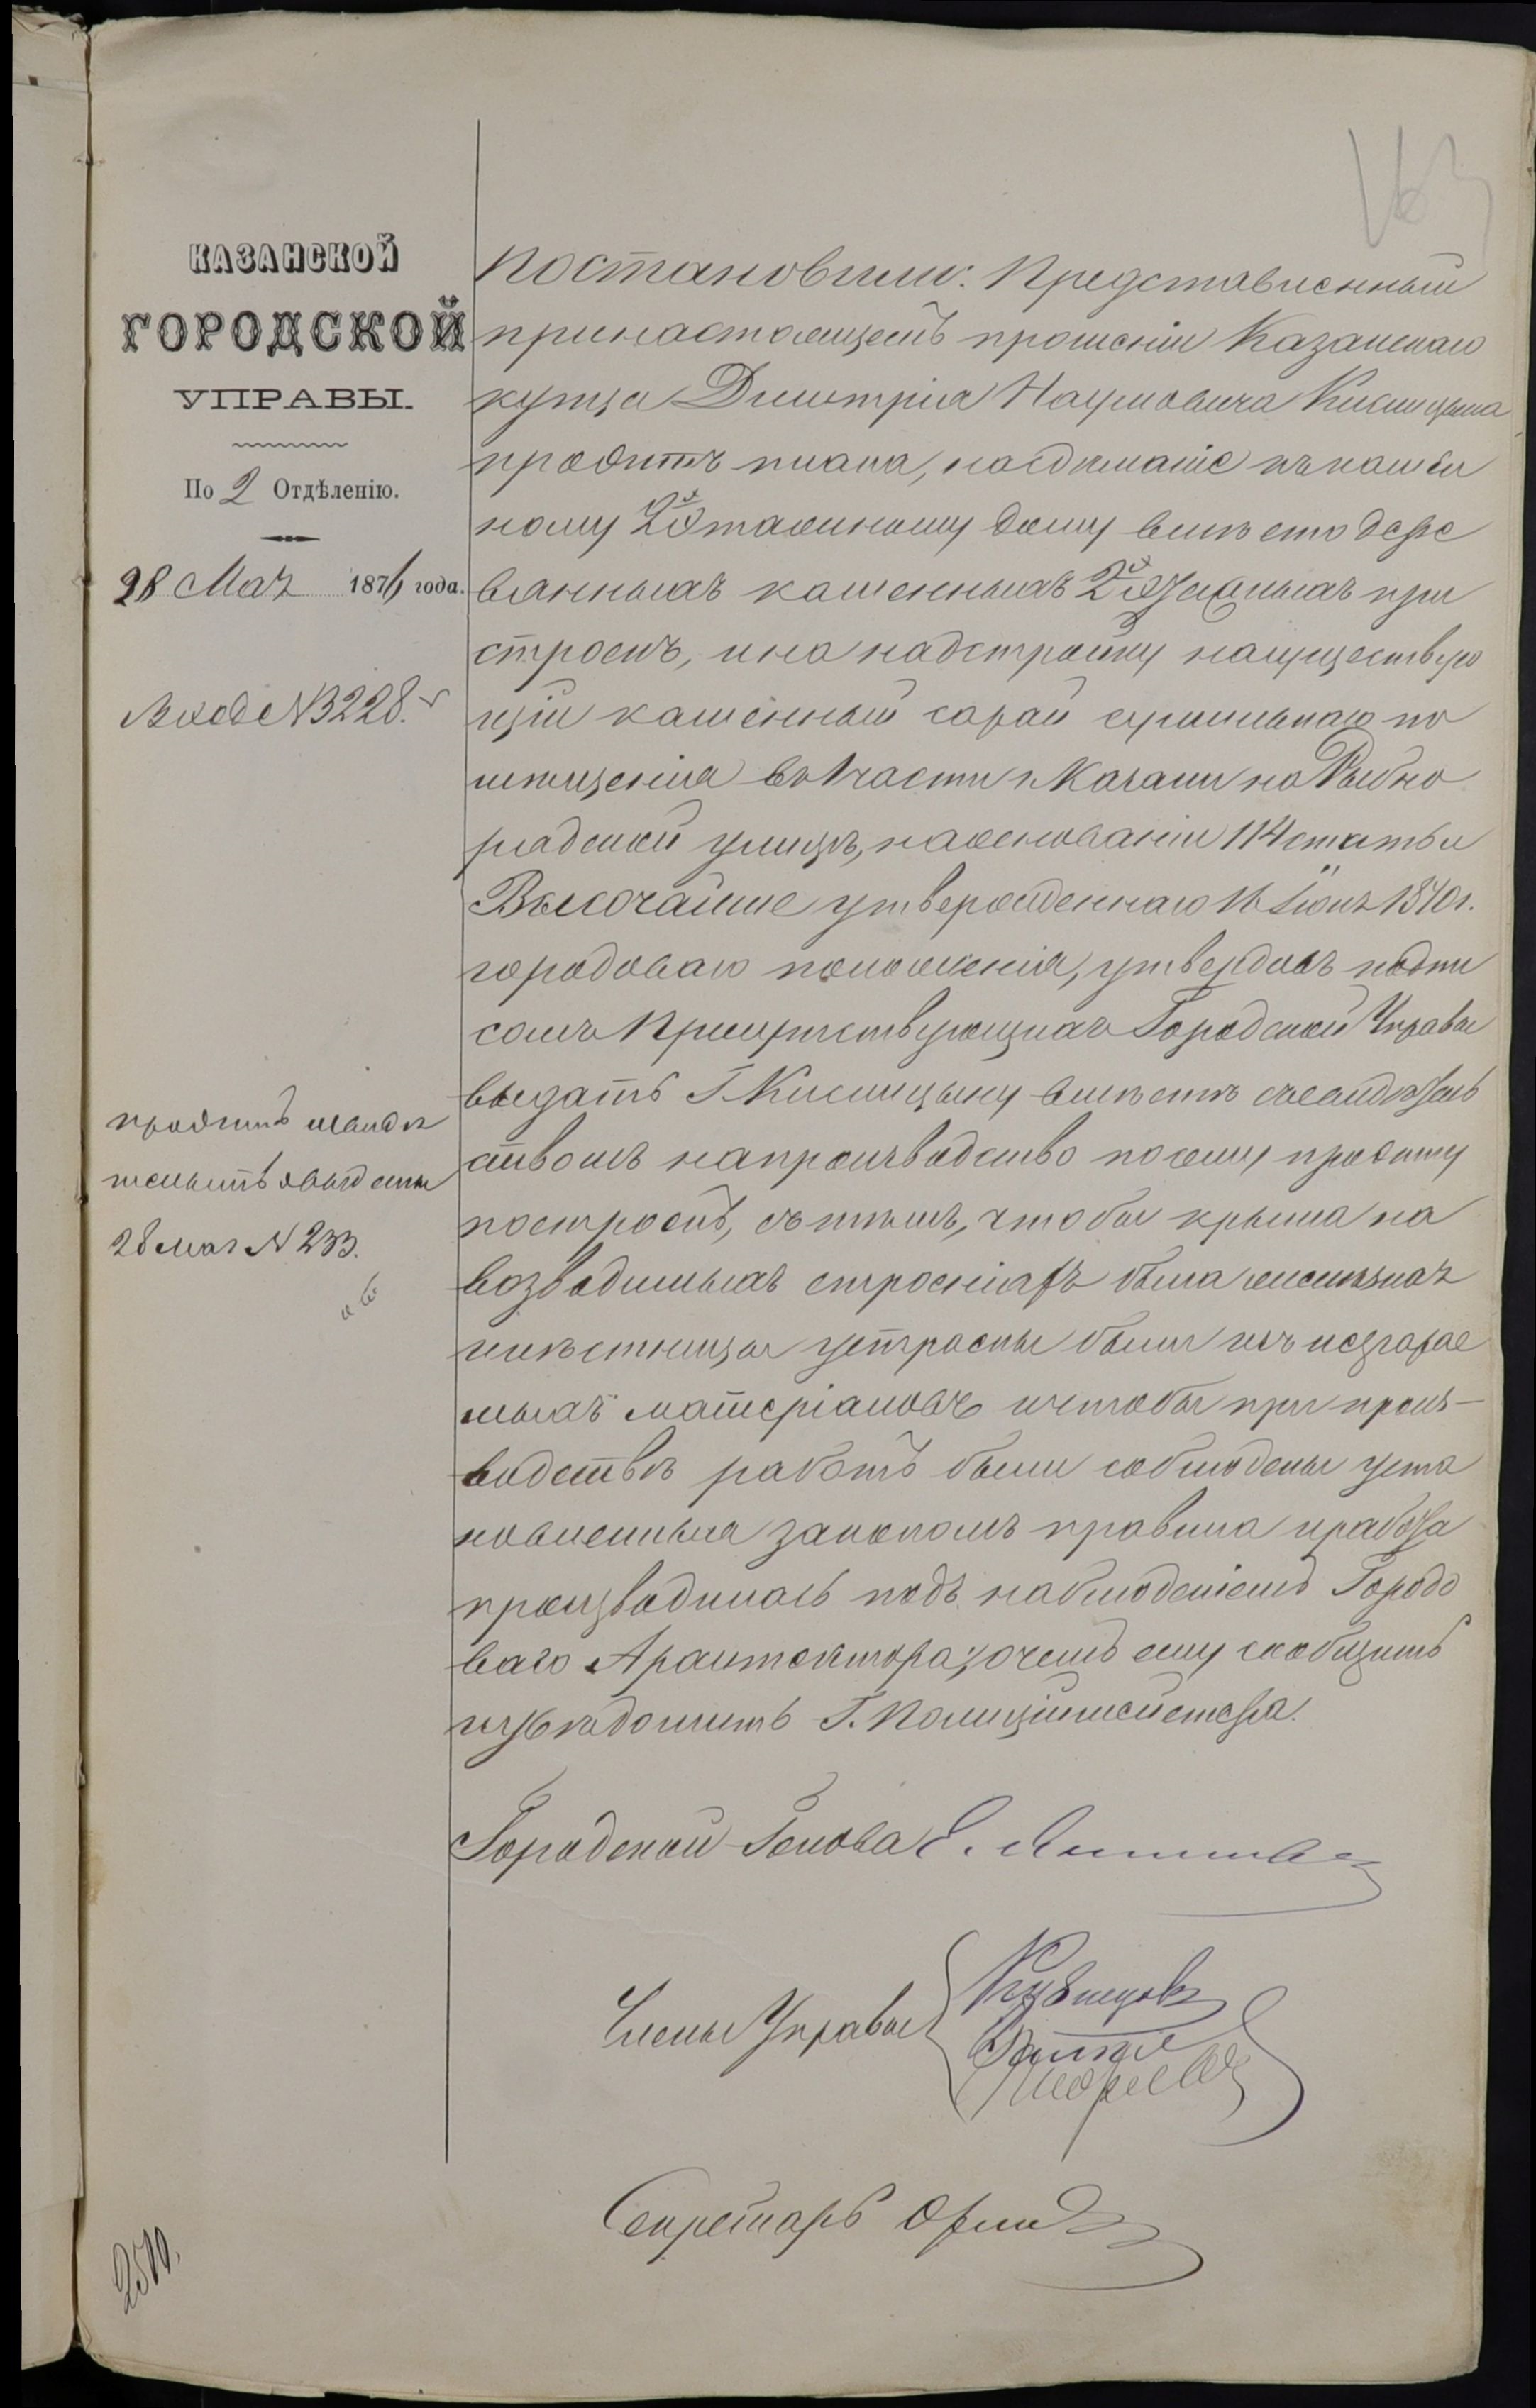 КАЗАНСКОЙ
ГОРОДСКОЙ
УПРАВЫ.
По 2 Отдѣленію.
28 Мая 1876 года.
Вход № 3228.
проэктъ
28 мая № 233.
2510.
Постановили: Представленный
при настоящемъ прошеніи Казанскаго
купца Димитрія Наумовича Кисилцына
проэктъ плана, на сдѣланіе къ камен
ному 2хэтажному дому вмѣсто дере
вянныхъ каменныхъ 2хэтажныхъ при
строевъ, и на надстройку на существую
щій каменный сарай сушильнаго по
мѣщенія во 1 части г. Казани на Рыбно
рядской улицѣ, на основаніи 114 статьи
Высочайше утвержденнаго 16 Іюня 1870 г.
городоваго положенія, утвердивъ подпи
сомъ Присутствующихъ Городской Управы
выдать Г. Кисилцыну вмѣстѣ съ свидѣтель
ствомъ на производство по сему проэкту
построекъ, съ тѣмъ, чтобы крыша на
возводимыхъ строеніяхъ была желѣзная
лѣстницы устроены были изъ несгарае
мыхъ матеріаловъ и чтобы при произ-
водствѣ работъ были соблюдены уста
новленныя закономъ правила и работа
производилась подъ наблюденіемъ Городо
ваго Архитектора; о чемъ ему сообщить
и увѣдомить Г. Полиціймейстера.
Городской Голова Е.
Члены Управы
Кузнецовъ
Секретарь